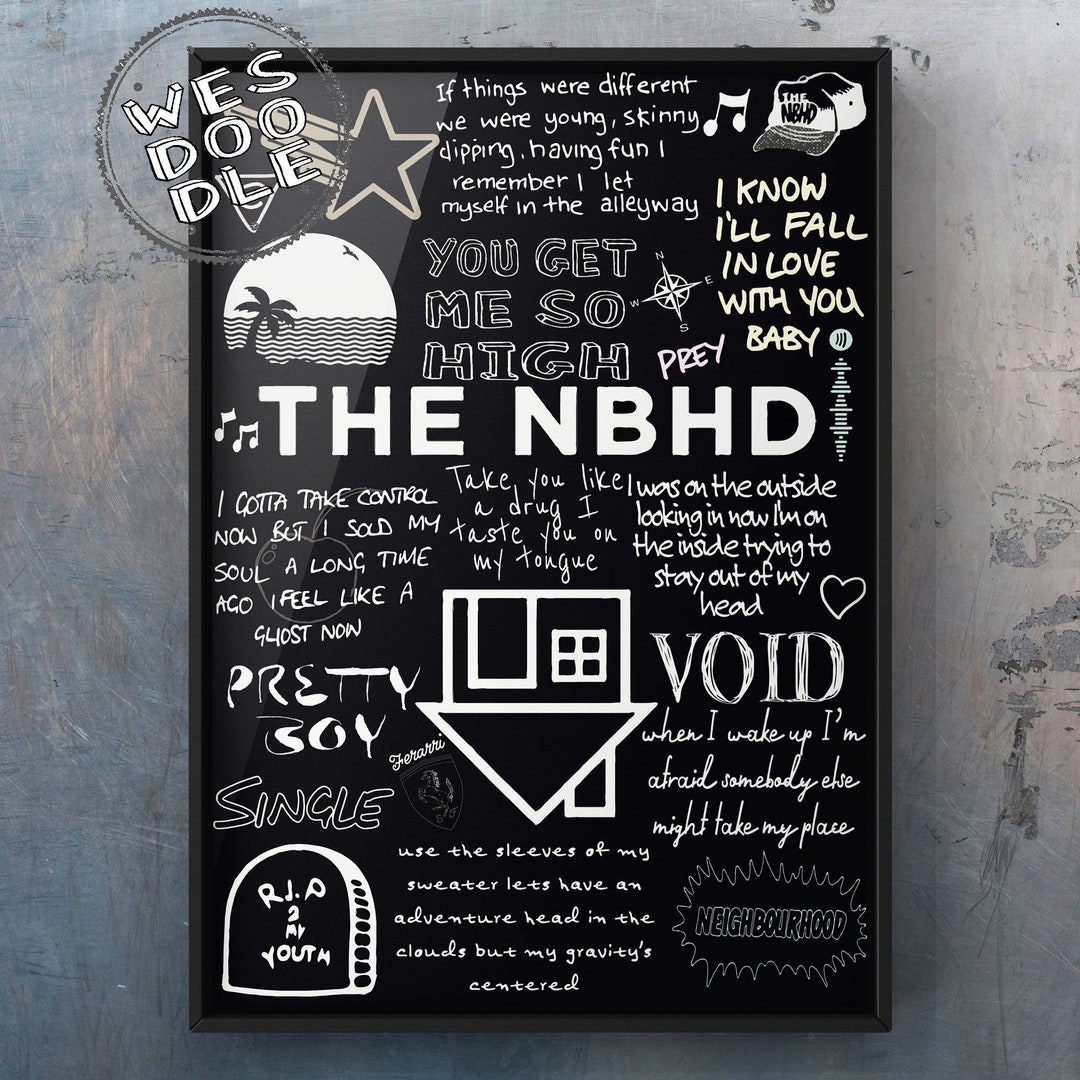 WES
DOO
DLE
If things were different
we were young, skinny
dipping, having fun I
remember I let
myself in the alleyway
THE
NBHD
I KNOW
I'LL FALL
IN LOVE
WITH YOU
BABY
YOU GET
ME SO
HIGH
N
W E
S
PREY
THE NBHD
I GOTTA TAKE CONTROL
NOW BUT I SOLD MY
SOUL A LONG TIME
AGO I FEEL LIKE A
GHOST NOW
Take you like
a drug I
taste you on
my tongue
I was on the outside
looking in now I'm on
the inside trying to
stay out of my
head
PRETTY
BOY
VOID
when I wake up I'm
afraid somebody else
might take my place
Ferarri
S F
SINGLE
R.I.P
2
MY
YOUTH
use the sleeves of my
sweater lets have an
adventure head in the
clouds but my gravity's
centered
NEIGHBOURHOOD